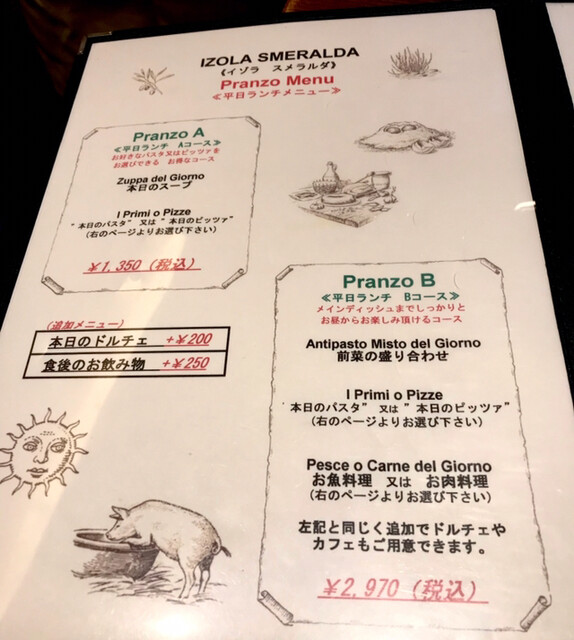 IZOLA SMERALDA
《イゾラ　スメラルダ》
Pranzo Menu
≪平日ランチメニュー≫
Pranzo A
≪平日ランチ　Aコース≫
お好きなパスタ又はピッツァを
お選びできる　お得なコース
Zuppa del Giorno
本日のスープ
I Primi o Pizze
"本日のパスタ"　又は　"本日のピッツァ"
（右のページよりお選び下さい）
￥1,350（税込）
(追加メニュー)
本日のドルチェ　+￥200
食後のお飲み物　+￥250
Pranzo B
≪平日ランチ　Bコース≫
メインディッシュまでしっかりと
お昼からお楽しみ頂けるコース
Antipasto Misto del Giorno
前菜の盛り合わせ
I Primi o Pizze
"本日のパスタ"　又は　"本日のピッツァ"
（右のページよりお選び下さい）
Pesce o Carne del Giorno
お魚料理　又は　お肉料理
（右のページよりお選び下さい）
左記と同じく追加でドルチェや
カフェもご用意できます。
￥2,970（税込）